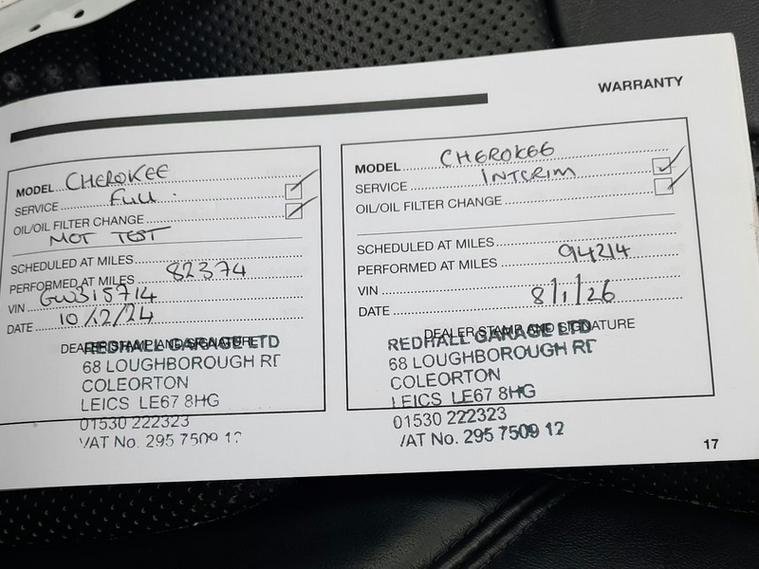 WARRANTY
MODEL CHEROKEE
SERVICE Full.
OIL/OIL FILTER CHANGE
MOT TEST
SCHEDULED AT MILES
PERFORMED AT MILES 82374
VIN GW315714
DATE 10/12/24
DEALER STAMP AND SIGNATURE
REDHALL GARAGE LTD
68 LOUGHBOROUGH RD
COLEORTON
LEICS LE67 8HG
01530 222323
VAT No. 295 7509 12
MODEL CHEROKEE
SERVICE INTERIM
OIL/OIL FILTER CHANGE
SCHEDULED AT MILES
PERFORMED AT MILES 94214
VIN
DATE 8/1/26
DEALER STAMP AND SIGNATURE
REDHALL GARAGE LTD
68 LOUGHBOROUGH RD
COLEORTON
LEICS LE67 8HG
01530 222323
VAT No. 295 7509 12
17